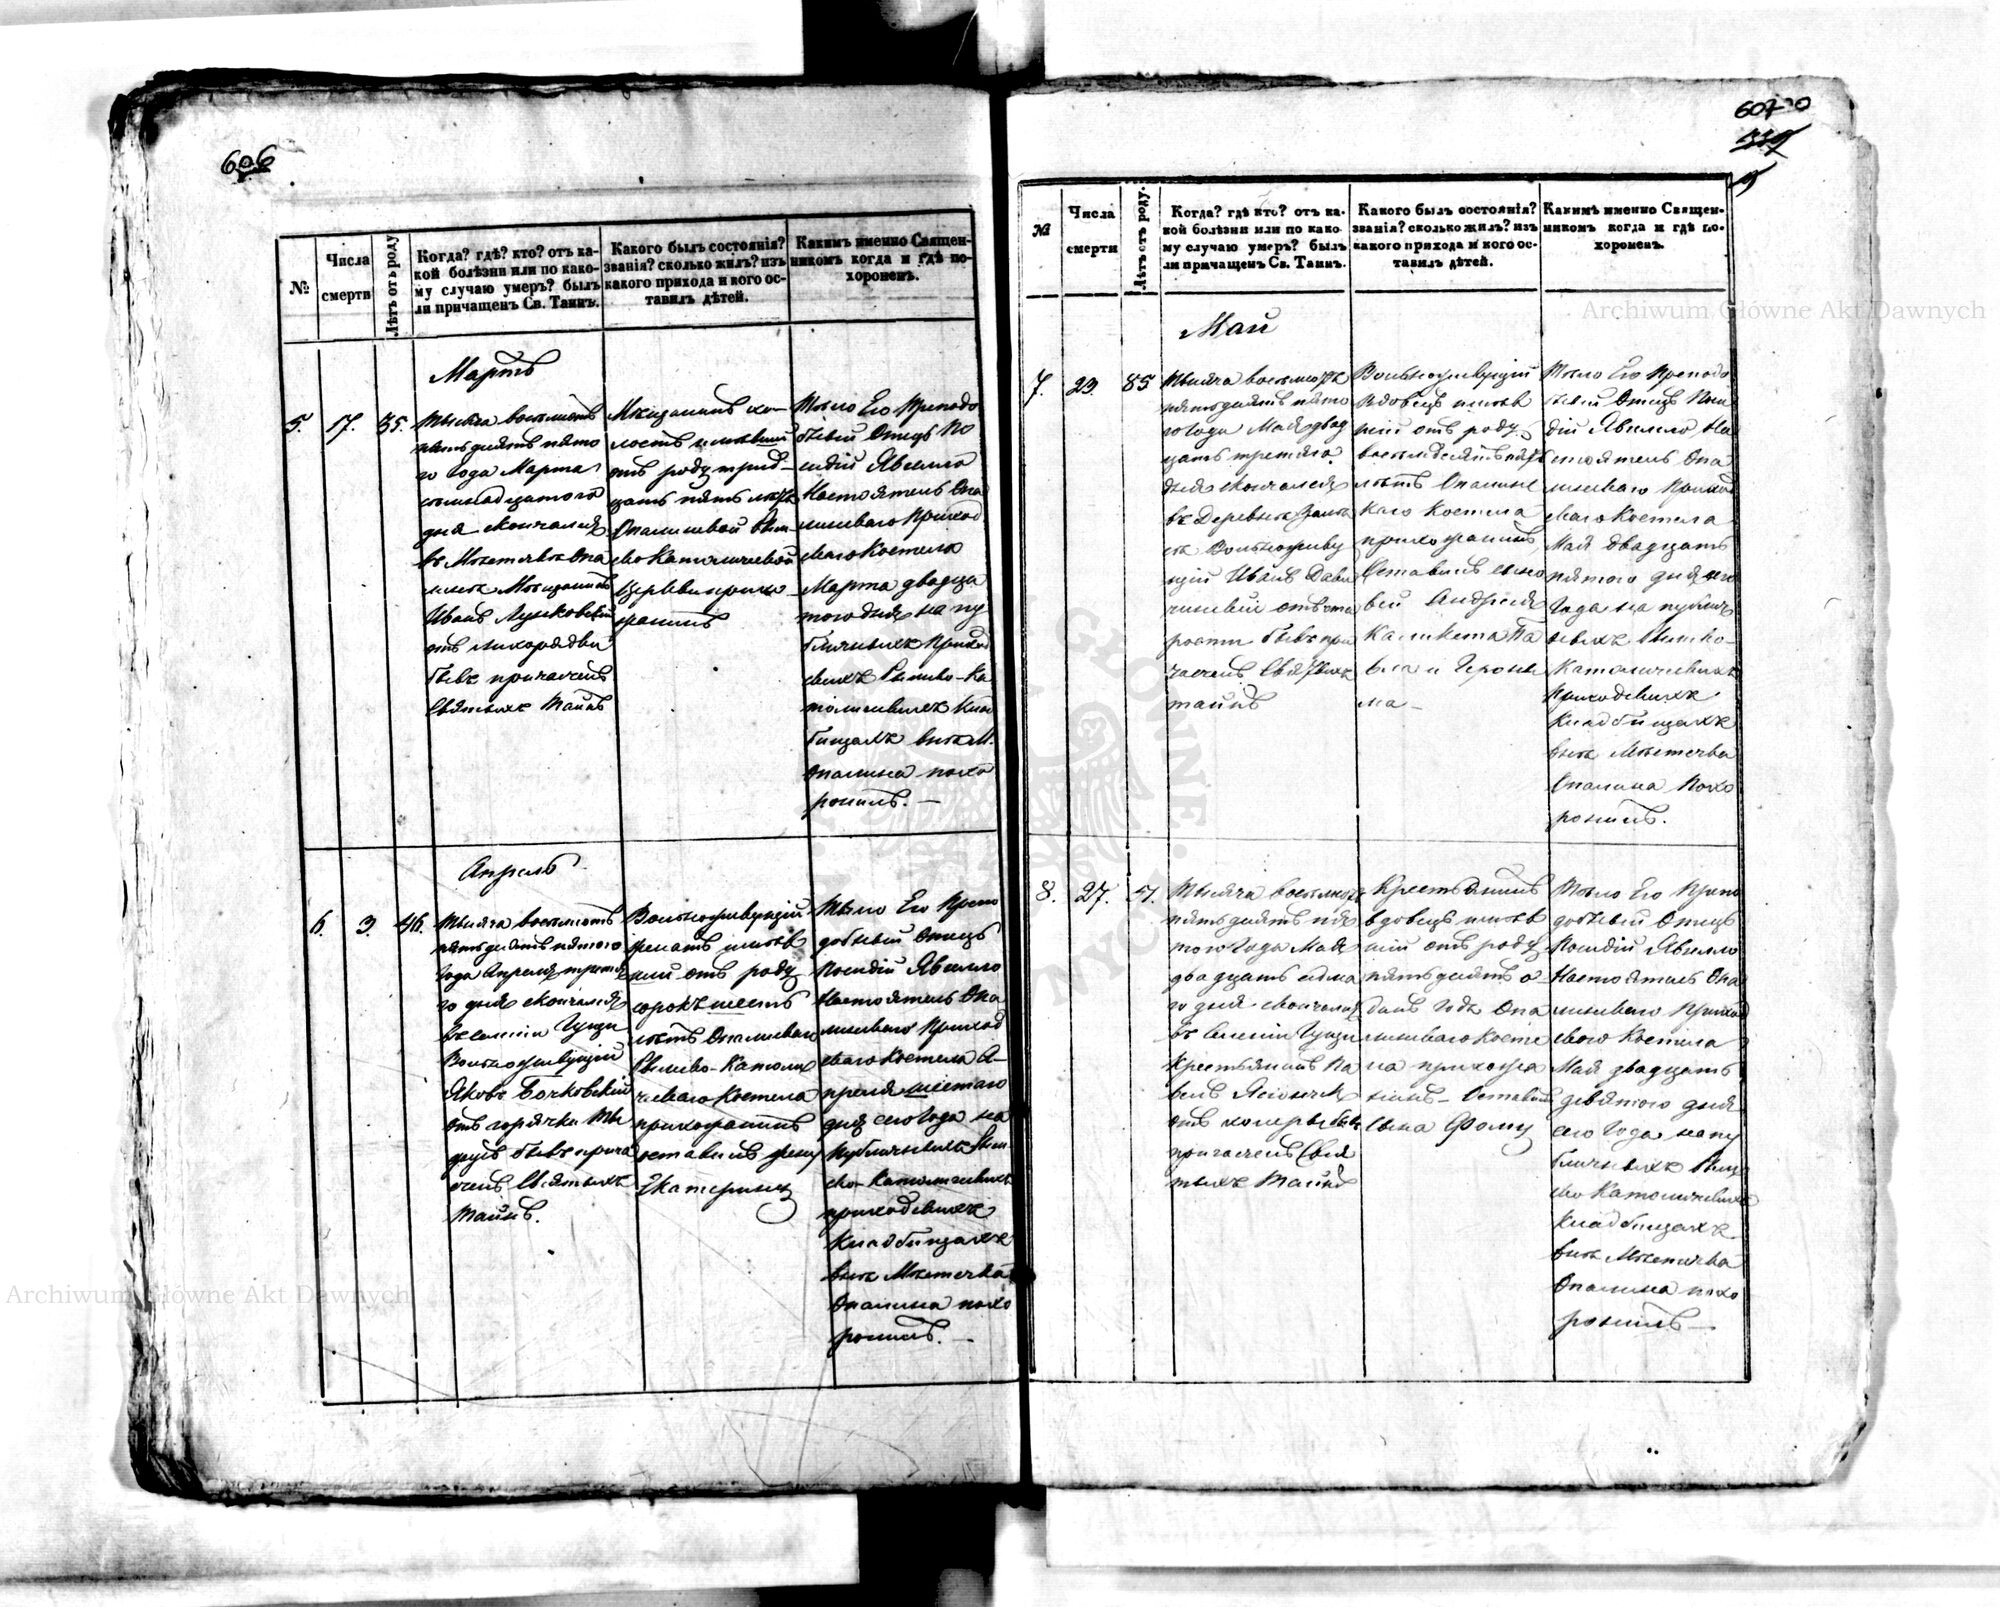 606
№
Числа
смерти
Лѣтъ отъ роду
Когда? гдѣ? кто? отъ ка-
кой болѣзни или по како-
му случаю умеръ? былъ
ли причащенъ Св. Таинъ.
Какого былъ состоянія?
званія? сколько жилъ? изъ
какого прихода и кого ос-
тавилъ дѣтей.
Какимъ именно Священ-
никомъ когда и гдѣ по-
хороненъ.
Мартъ
5.
17.
35.
Тысяча восемсотъ
пятьдесятъ пято
го Года Марта
семнадцатого
дня скончался
въ Мѣстечкѣ Опа
линѣ Мѣщанинъ
Иванъ
отъ лихорадки
бывъ причащенъ
Святыхъ Тайнъ
Мѣщанинъ хо-
лостъ имѣвший
отъ роду трид-
цать пять лѣтъ
Опалинской Рим-
ско Католической
Церкви прихо-
жанинъ
Тѣло Его Преподо
бный Отецъ По
сидій Явелло
Настоятель Опа
линскаго Приход
скаго Костела
Марта двадца
того дня на пу
бличныхъ Приход
скихъ Римско-Ка
толическихъ Клад
бищахъ внѣ М.
Опалина похо
ронилъ. —
Апрель
6.
3.
46.
Тысяча восемсотъ
пятьдесятъ пятого
Года Апреля третя
го дня скончался
въ селеніи Гущи
Вольноживущій
Яковъ Бочковский
отъ горячки
бывъ прича
щенъ Святыхъ
Тайнъ.
Вольноживущій
женатъ имѣв
ший отъ роду
сорокъ шесть
лѣтъ Опалинскаго
Римско-Католи
ческаго Костела
прихожанинъ
оставилъ жену
Екатерину
Тѣло Его Препо
добный Отецъ
Посидій Явелло
Настоятель Опа
линскаго Приход
скаго Костела А-
преля шестаго
дня сего Года на
Публичныхъ Рим-
ско-Католическихъ
приходскихъ
Кладбищахъ
внѣ Мѣстечка
Опалина похо
ронилъ. —
607
№
Числа
смерти
Лѣтъ отъ роду.
Когда? гдѣ кто? отъ ка-
кой болѣзни или по како-
му случаю умеръ? былъ
ли причащенъ Св. Таинъ.
Какого былъ состоянія?
званія? сколько жилъ? изъ
какого прихода и кого ос-
тавилъ дѣтей.
Какимъ именно Священ-
никомъ когда и гдѣ по-
хороненъ.
Май
7.
23.
85
Тысяча восемсотъ
пятьдесятъ пято
го Года Мая двад
цать третяго
дня скончался
въ Деревнѣ
Вольноживу
щій Иванъ
отъ ста
рости бывъ при
чащенъ Святыхъ
тайнъ
Вольноживущій
Вдовецъ имѣв
ший отъ роду
восемдесятъ пять
лѣтъ Опалинс
каго Костела
прихожанинъ,
Оставилъ сыно
вей Андрея
Па
вла и Герони
ма —
Тѣло Его Преподо
бный Отецъ Поси
дій Явелло На
стоятель Опа
линскаго Приход
скаго Костела
Май двадцать
пятого дня сего
Года на публич
ныхъ Римско-
Католическихъ
Приходскихъ
Кладбищахъ
внѣ Мѣстечка
Опалина Похо
ронилъ.
8.
27.
51.
Тысяча восемсотъ
пятьдесятъ пя
того Года Мая
двадцать седма
го дня скончался
въ Селеніи Гущи
Крестьянинъ Па
велъ
отъ холеры бывъ
причащенъ Свя
тыхъ Тайнъ
Крестьянинъ
вдовецъ имѣв
ший отъ роду
пятьдесятъ о-
динъ Годъ Опа
линскаго Косте
ла прихожа
нинъ — Оставилъ
сына Фому
Тѣло Его Препо
добный Отецъ
Посидій Явелло
Настоятель Опа
линскаго Приход
скаго Костела
Май двадцать
девятого дня
сего Года на пу
бличныхъ Римс
ко Католическихъ
Кладбищахъ
внѣ Мѣстечка
Опалина похо
ронилъ —
Archiwum Główne Akt Dawnych
Archiwum Główne Akt Dawnych